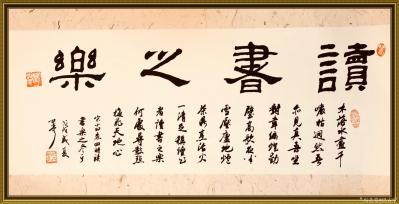 讀書之樂
木落水盡千
崖枯迥然吾
亦見真吾坐
對韋編燈動
壁高歌夜半
雪壓廬地爐
茶鼎烹活火
一清足稱讀書
者讀書之樂
何處尋數點
梅花天地心
宋翁森四時讀
書樂之冬
戊戌夏